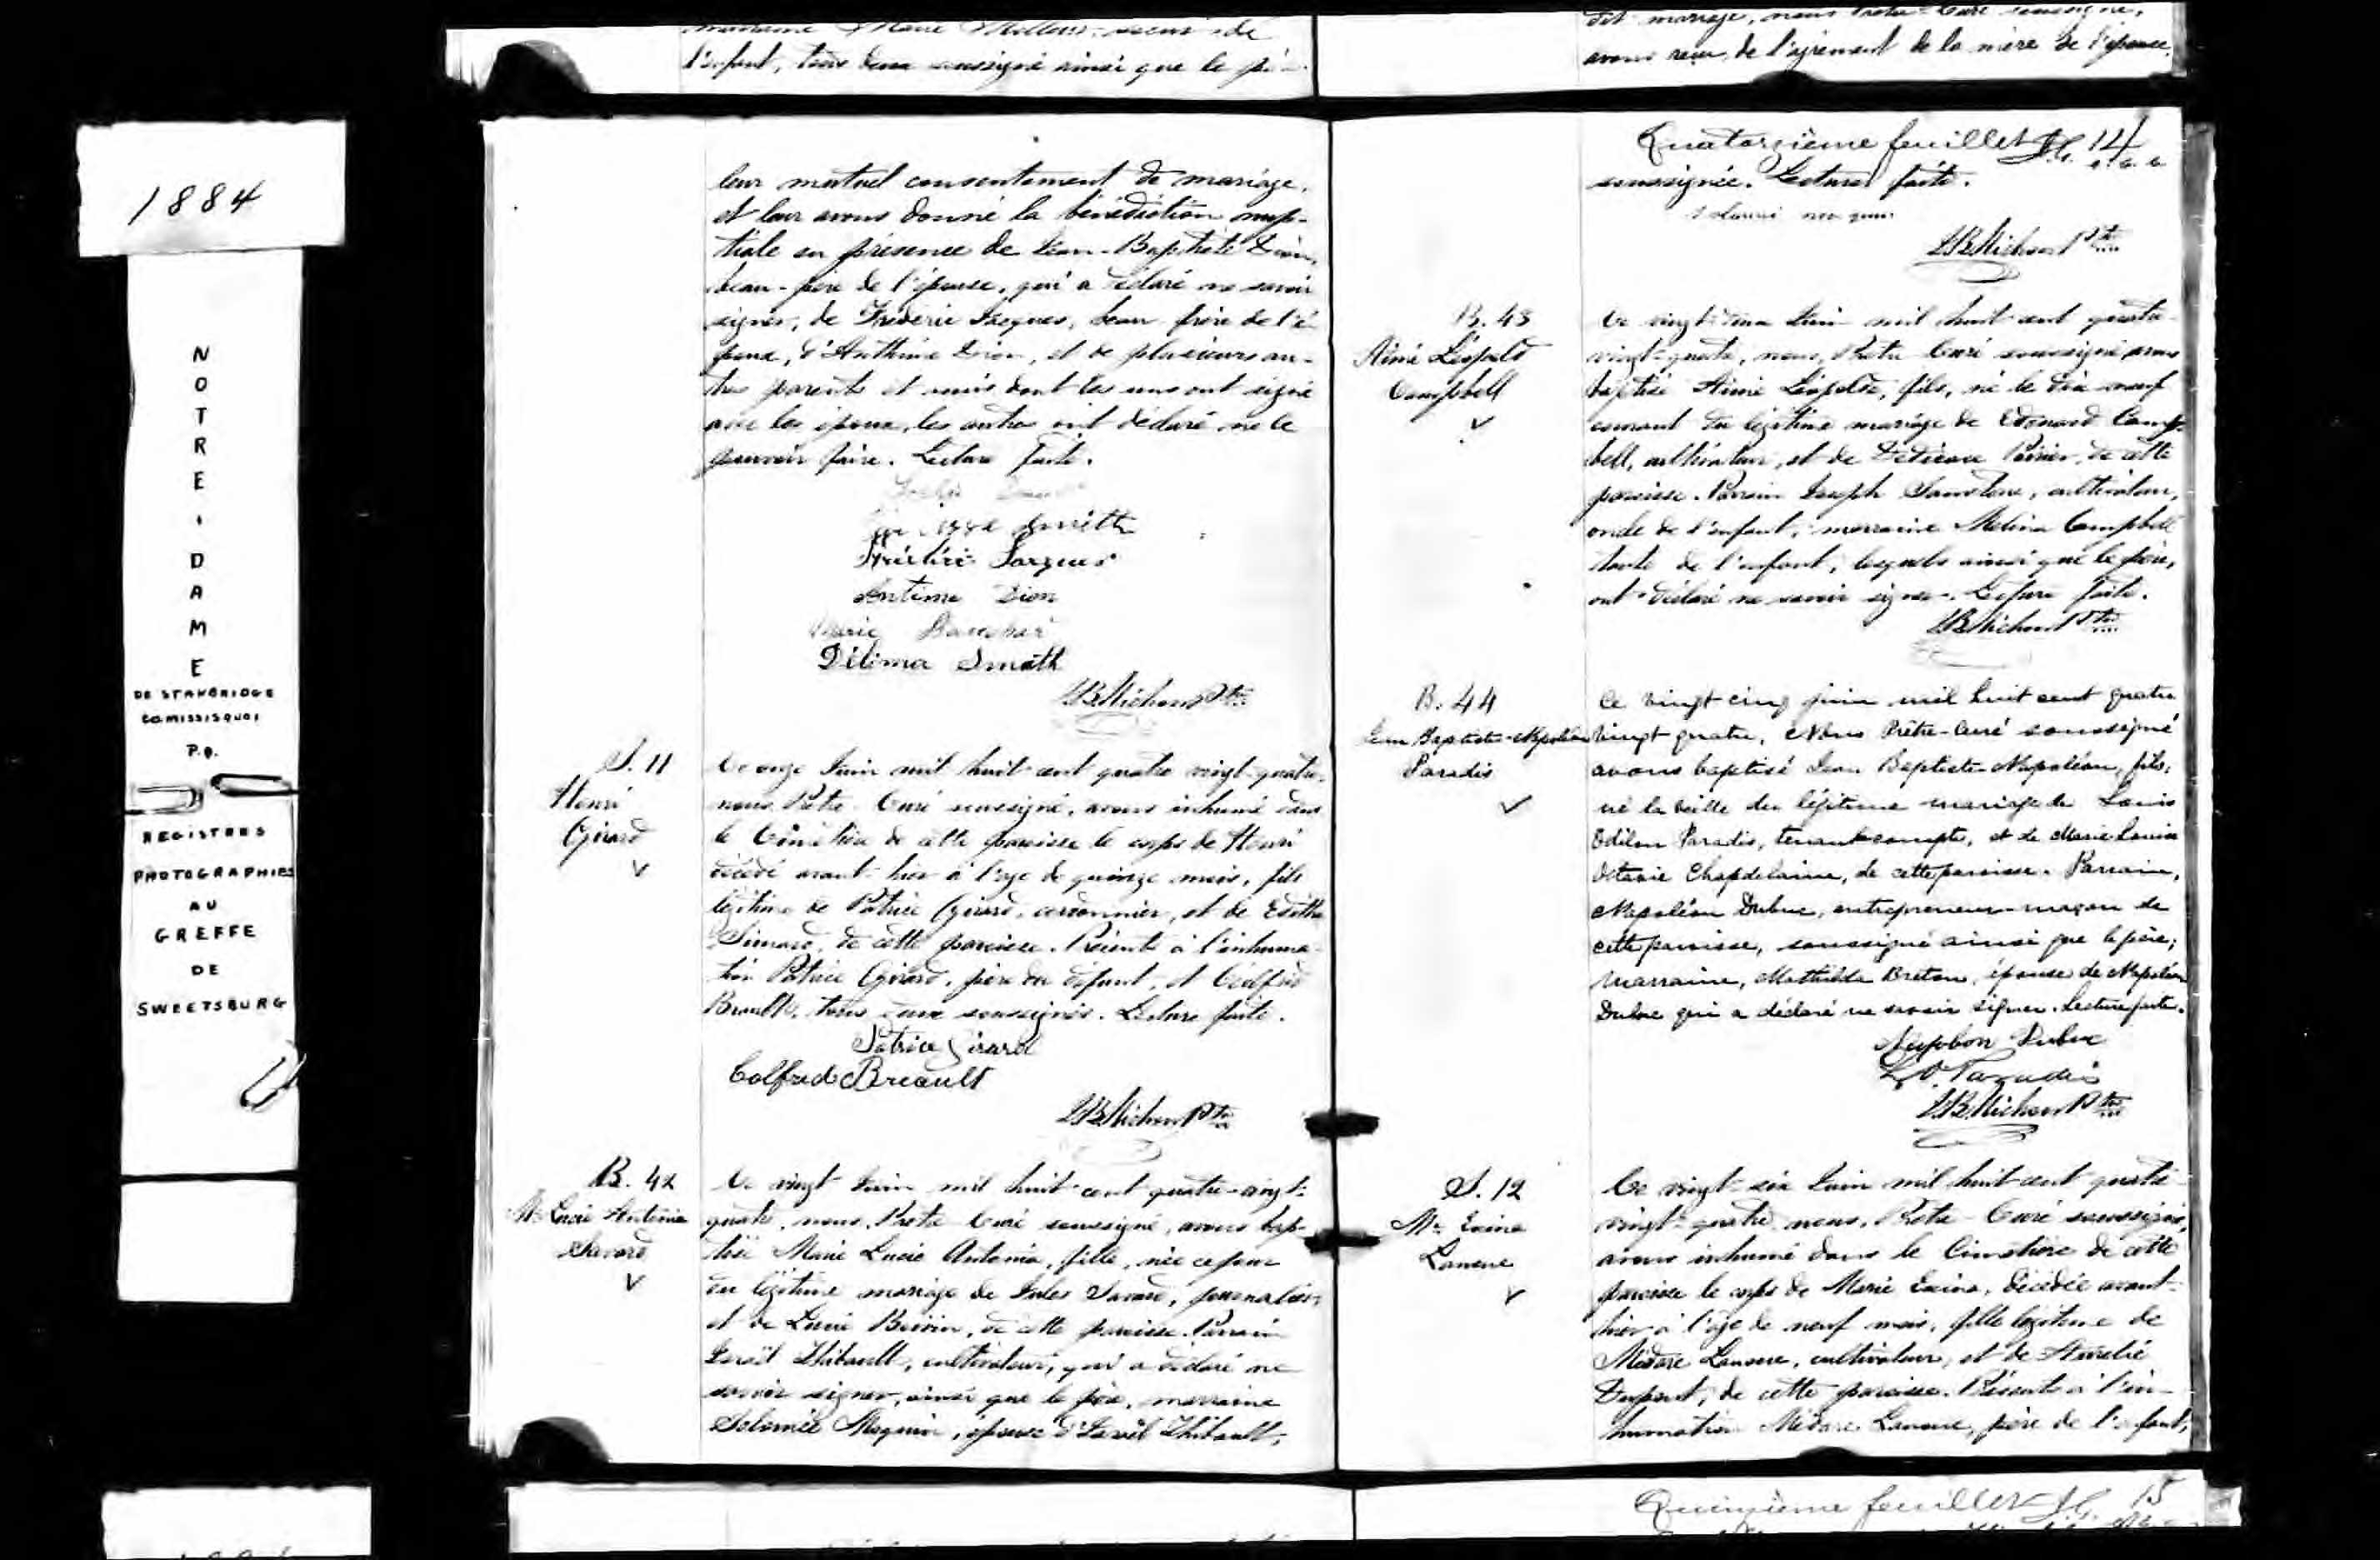 madame Marie
l'enfant, tous deux soussigné ainsi que le
dit mariage, nous Prêtre-Curé soussigné,
avons reçu, de l'agrément de la mère de l'épouse,
1884
NOTRE-DAME
DE STANBRIDGE
CO MISSISQUOI
P.Q.
REGISTRES
PHOTOGRAPHIES
AU
GREFFE
DE
SWEETSBURG
leur mutuel consentement de mariage,
et leur avons donné la bénédiction nup-
tiale en présence de Jean-Baptiste Dion,
beau-père de l'épouse, qui a déclaré ne savoir
signer, de Frédéric Jacques, beau frère de l'é-
poux, d'Anthime Dion, et de plusieurs au-
tres parents et amis dont les uns ont signé
avec les époux, les autres ont déclaré ne le
pouvoir faire. Lecture faite.
Smith
Jacques
Antime Dion
Marie
Délima Smith
Michon Ptre
S. 11
Henri
Girard
Ce onze Juin mil huit-cent quatre vingt-quatre,
nous Prêtre-Curé soussigné, avons inhumé dans
le Cimetière de cette paroisse le corps de Henri
décédé avant-hier à l'age de quinze mois, fils
légitime de Patrice Girard, cordonnier, et de Edithe
Simard, de cette paroisse. Présents à l'inhuma-
tion Patrice Girard, père du défunt, et Colfred
Breault, tous deux soussignés. Lecture faite.
Patrice Girard
Colfred Breault
Michon Ptre
B. 42
Mie Lucie Antonia
Savard
Ce vingt Juin mil huit-cent quatre-vingt-
quatre, nous, Prêtre Curé soussigné, avons bap-
tisé Marie Lucie Antonia, fille, née ce jour
du légitime mariage de Jules Savard, journalier,
et de Lucie Boivin, de cette paroisse. Parrain
Israël Thibault, cultivateur, qui a déclaré ne
savoir signer, ainsi que le père, marraine
Solomée Moquin, épouse d'Israël Thibault,
Quatorzième feuillet 14
soussignée. Lecture faite.
Michon Ptre
B. 43
Aimé Léopold
Campbell
Ce vingt-deux Juin mil huit-cent quatre-
vingt-quatre, nous, Prêtre Curé soussigné avons
baptisé Aimé Léopold, fils, né le dix neuf
courant du légitime mariage de Edouard Camp-
bell, cultivateur, et de Poirier, de cette
paroisse. Parrain Joseph, cultivateur,
oncle de l'enfant; marraine Melina Campbell
tante de l'enfant; lesquels ainsi que le père,
ont déclaré ne savoir signer. Lecture faite.
Michon Ptre
B. 44
Jean Baptiste-Napoléon
Paradis
Ce vingt-cinq juin mil huit cent quatre
vingt quatre, Nous Prêtre-Curé soussigné
avons baptisé Jean Baptiste-Napoléon, fils,
né la veille du légitime mariage de Louis
Odilon Paradis, tenant compte, et de Marie Louise
Octavie Chapdelaine, de cette paroisse. Parrain,
Napoléon Dubuc, entrepreneur-maçon de
cette paroisse, soussigné ainsi que le père;
Marraine, Mathilda Breton, épouse de Napoléon
Dubuc qui a déclaré ne savoir signer. Lecture faite.
Napoleon Dubuc
L.O. Paradis
Michon Ptre
S. 12
Mie Exina
Lanoue
Ce vingt-six Juin mil huit-cent quatre-
vingt-quatre, nous, Prêtre-Curé soussigné,
avons inhumé dans le Cimetière de cette
paroisse le corps de Marie Exina, décédée avant-
hier à l'age de neuf mois, fille légitime de
Médare Lanoue, cultivateur, et de Aurélie
Dupont, de cette paroisse. Présents à l'in-
humation Médare Lanoue, père de l'enfant,
Quinzième feuillet 15